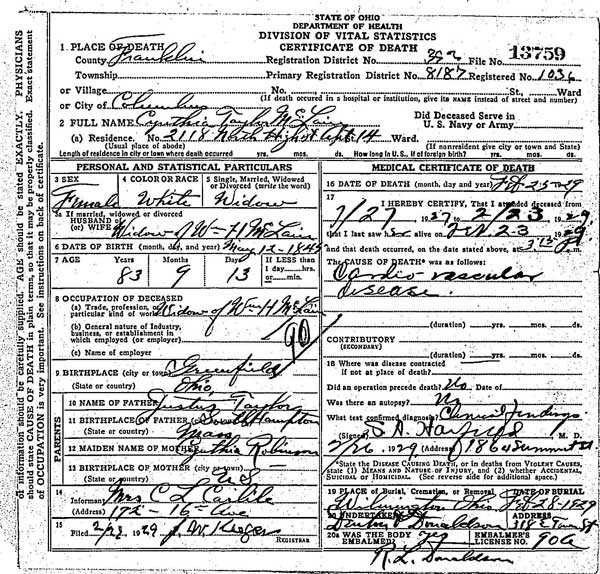 STATE OF OHIO
DEPARTMENT OF HEALTH
DIVISION OF VITAL STATISTICS
CERTIFICATE OF DEATH
1. PLACE OF DEATH
County Franklin Registration District No. 392 File No. 13759
Township Primary Registration District No. 8187 Registered No. 1036
or Village No. St., Ward
or City of Columbus (If death occurred in a hospital or institution, give its NAME instead of street and number)
2 FULL NAME Cynthia Taylor McLain Did Deceased Serve in U. S. Navy or Army
(a) Residence. No. 2118 North High St Apt 14 Ward.
(Usual place of abode) (If nonresident give city or town and State)
Length of residence in city or town where death occurred yrs. mos. ds. How long in U. S., if of foreign birth? yrs. mos. ds.
PERSONAL AND STATISTICAL PARTICULARS
3 SEX 4 COLOR OR RACE 5 Single, Married, Widowed or Divorced (write the word)
Female White Widow
5a If married, widowed or divorced
HUSBAND of
(or) WIFE of Widow of Wm H McLain
6 DATE OF BIRTH (month, day, and year) May 12-1845
7 AGE Years Months Days If LESS than
1 day hrs.
or min.
83 9 13
8 OCCUPATION OF DECEASED
(a) Trade, profession, or
particular kind of work Widow of Wm H McLain
(b) General nature of Industry,
business, or establishment in
which employed (or employer)
90
(c) Name of employer
9 BIRTHPLACE (city or town) Greenfield
(State or country) Ohio
PARENTS
10 NAME OF FATHER Justus Taylor
11 BIRTHPLACE OF FATHER (city or town) Hampton
(State or country) Mass
12 MAIDEN NAME OF MOTHER Cynthia Robinson
13 BIRTHPLACE OF MOTHER (city or town)
(State or country) U S
14
Informant Mrs C L Carlile
192 - 16 Ave
15
Filed 2/28, 1929 REGISTRAR
MEDICAL CERTIFICATE OF DEATH
16 DATE OF DEATH (month, day and year) Feb-25 1929
17
I HEREBY CERTIFY, That I attended deceased from
1/27 1927 to 2/23 1929,
that I last saw her alive on Feb 23 1929
and that death occurred, on the date stated above, at 3:15 P.m.
The CAUSE OF DEATH* was as follows:
Cardio vascular
disease.
(duration) yrs. mos. ds.
CONTRIBUTORY
(SECONDARY)
(duration) yrs. mos. ds.
18 Where was disease contracted
if not at place of death?
Did an operation precede death? No Date of
Was there an autopsy? No
What test confirmed diagnosis? Clinical findings
(Signed) S. A. Hatfield M. D.
2/26, 1929 (Address) 1860 Summit St
*State the DISEASE CAUSING DEATH, or in deaths from VIOLENT CAUSES,
state (1) MEANS AND NATURE OF INJURY, and (2) whether ACCIDENTAL,
SUICIDAL OR HOMICIDAL. (See reverse side for additional space.)
19 PLACE of Burial, Cremation, or Removal. DATE OF BURIAL
Wilmington Ohio Feb-28-1929
20 UNDERTAKER ADDRESS
Donaldson 318 E Town St
20a WAS THE BODY EMBALMED? yes EMBALMER'S LICENSE NO. 90a
R. L. Donaldson
of information should be carefully supplied. AGE should be stated EXACTLY. PHYSICIANS
should state CAUSE OF DEATH in plain terms, so that it may be properly classified. Exact statement
of OCCUPATION is very important. See instructions on back of certificate.